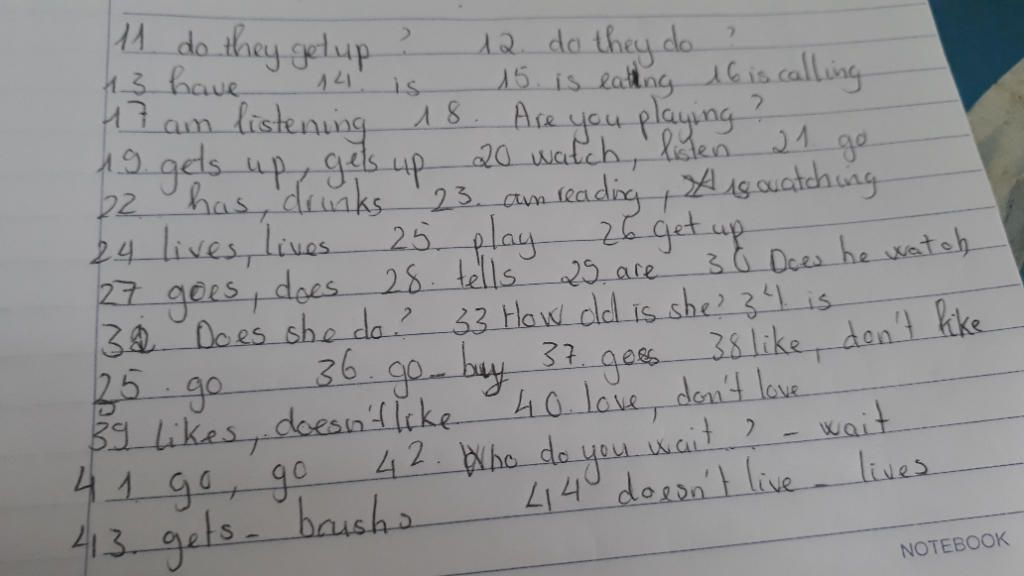 11. do they get up ? 12. do they do ?
13 have 14. is 15. is eating 16 is calling
17 am listening 18. Are you playing ?
19. gets up, gets up 20 watch, listen 21. go
22 has, drinks 23. am reading, is watching
24 lives, lives 25. play 26 get up
27 goes, does 28. tells 29. are 30 Does he watch
32 Does she do? 33 How old is she? 34. is
25. go 36. go - buy 37. goes 38 like, don't like
39 likes, doesn't like 40. love, don't love
41. go, go 42. Who do you wait ? - wait
43. gets - brushs 44 doesn't live - lives
NOTEBOOK